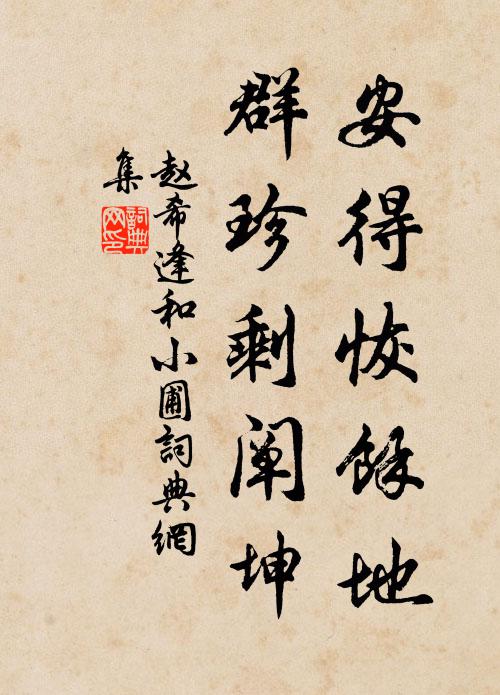 安得恢餘地
群珍剩阐坤
赵希逢和小圃詞典網
集
詞典
网印